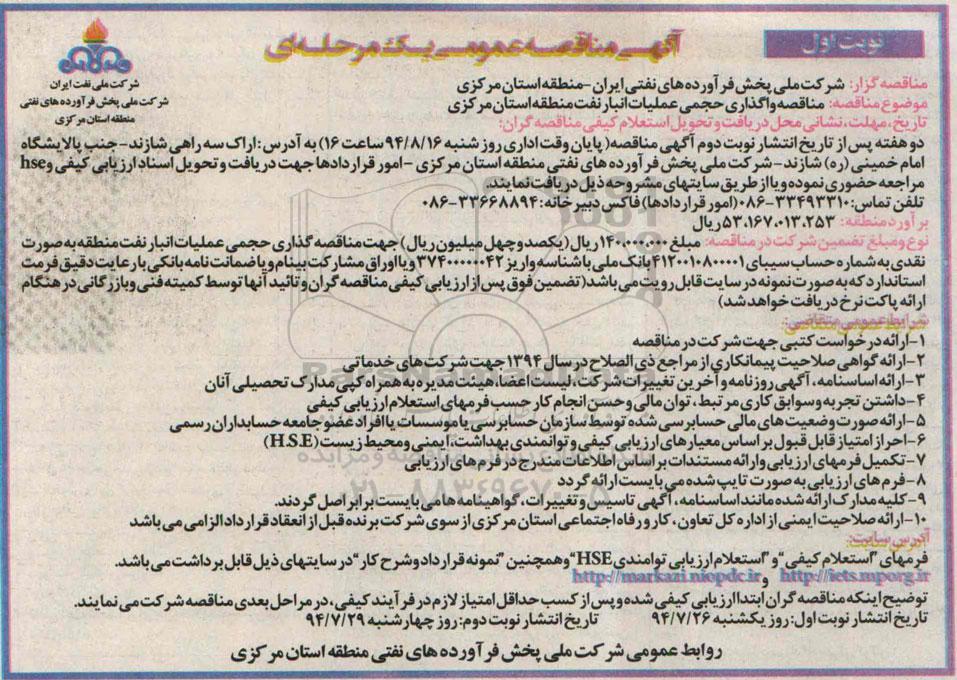 نوبت اول
آگهی مناقصه عمومی یک مرحله‌ای
شرکت ملی نفت ایران
شرکت ملی پخش فرآورده های نفتی
منطقه استان مرکزی
مناقصه گزار: شرکت ملی پخش فرآورده های نفتی ایران -منطقه استان مرکزی
موضوع مناقصه: مناقصه واگذاری حجمی عملیات انبار نفت منطقه استان مرکزی
تاریخ، مهلت، نشانی محل دریافت و تحویل استعلام کیفی مناقصه گران:
دو هفته پس از تاریخ انتشار نوبت دوم آگهی مناقصه( پایان وقت اداری روز شنبه ۹۴/۸/۱۶ ساعت ۱۶) به آدرس : اراک سه راهی شازند- جنب پالایشگاه
امام خمینی (ره) شازند- شرکت ملی پخش فرآورده های نفتی منطقه استان مرکزی -امور قراردادها جهت دریافت و تحویل اسناد ارزیابی کیفی و hse
مراجعه حضوری نموده و یا از طریق سایتهای مشروحه ذیل دریافت نمایند.
تلفن تماس: ۳۳۴۹۳۳۱۰-۰۸۶ (امور قراردادها) فاکس دبیرخانه: ۳۳۶۶۸۸۹۴-۰۸۶
برآورد منطقه: ۵۳.۱۶۷.۰۱۳.۲۵۳ ریال
نوع و مبلغ تضمین شرکت در مناقصه: مبلغ ۱۴۰.۰۰۰.۰۰۰ ریال (یکصد و چهل میلیون ریال) جهت مناقصه گذاری حجمی عملیات انبار نفت منطقه به صورت
نقدی به شماره حساب سیبای ۴۱۲۰۰۱۰۸۰۰۰۰۱ بانک ملی با شناسه واریز ۳۷۴۰۰۰۰۰۰۴۲ و یا اوراق مشارکت بینام و یا ضمانت نامه بانکی با رعایت دقیق فرمت
استاندارد که به صورت نمونه در سایت قابل رویت می باشد( تضمین فوق پس از ارزیابی کیفی مناقصه گران و تائید آنها توسط کمیته فنی و بازرگانی در هنگام
ارائه پاکت نرخ دریافت خواهد شد)
شرایط عمومی متقاضی:
۱-ارائه درخواست کتبی جهت شرکت در مناقصه
۲-ارائه گواهی صلاحیت پیمانکاری از مراجع ذی الصلاح در سال ۱۳۹۴ جهت شرکت های خدماتی
۳-ارائه اساسنامه، آگهی روزنامه و آخرین تغییرات شرکت، لیست اعضا، هیئت مدیره به همراه کپی مدارک تحصیلی آنان
۴-داشتن تجربه و سوابق کاری مرتبط ، توان مالی و حسن انجام کار حسب فرمهای استعلام ارزیابی کیفی
۵-ارائه صورت وضعیت های مالی حسابرسی شده توسط سازمان حسابرسی یا موسسات یا افراد عضو جامعه حسابداران رسمی
۶-احراز امتیاز قابل قبول بر اساس معیارهای ارزیابی کیفی و توانمندی بهداشت، ایمنی و محیط زیست (H.S.E)
۷-تکمیل فرمهای ارزیابی و ارائه مستندات بر اساس اطلاعات مندرج در فرم های ارزیابی
۸-فرم های ارزیابی به صورت تایپ شده می بایست ارائه گردد
۹-کلیه مدارک ارائه شده مانند اساسنامه ، آگهی تاسیس و تغییرات ، گواهینامه ها می بایست برابر اصل گردند.
۱۰-ارائه صلاحیت ایمنی از اداره کل تعاون ، کار و رفاه اجتماعی استان مرکزی از سوی شرکت برنده قبل از انعقاد قرارداد الزامی می باشد
آدرس سایت:
فرمهای "استعلام کیفی" و "استعلام ارزیابی توامندی HSE" و همچنین "نمونه قرارداد و شرح کار" در سایتهای ذیل قابل برداشت می باشد.
http://iets.mporg.ir و http://markazi.niopdc.ir
توضیح اینکه مناقصه گران ابتدا ارزیابی کیفی شده و پس از کسب حداقل امتیاز لازم در فرآیند کیفی، در مراحل بعدی مناقصه شرکت می نمایند.
تاریخ انتشار نوبت اول: روز یکشنبه ۹۴/۷/۲۶ تاریخ انتشار نوبت دوم: روز چهارشنبه ۹۴/۷/۲۹
روابط عمومی شرکت ملی پخش فرآورده های نفتی منطقه استان مرکزی
۰۲۱-۸۸۳۴۹۶۷۰-۵